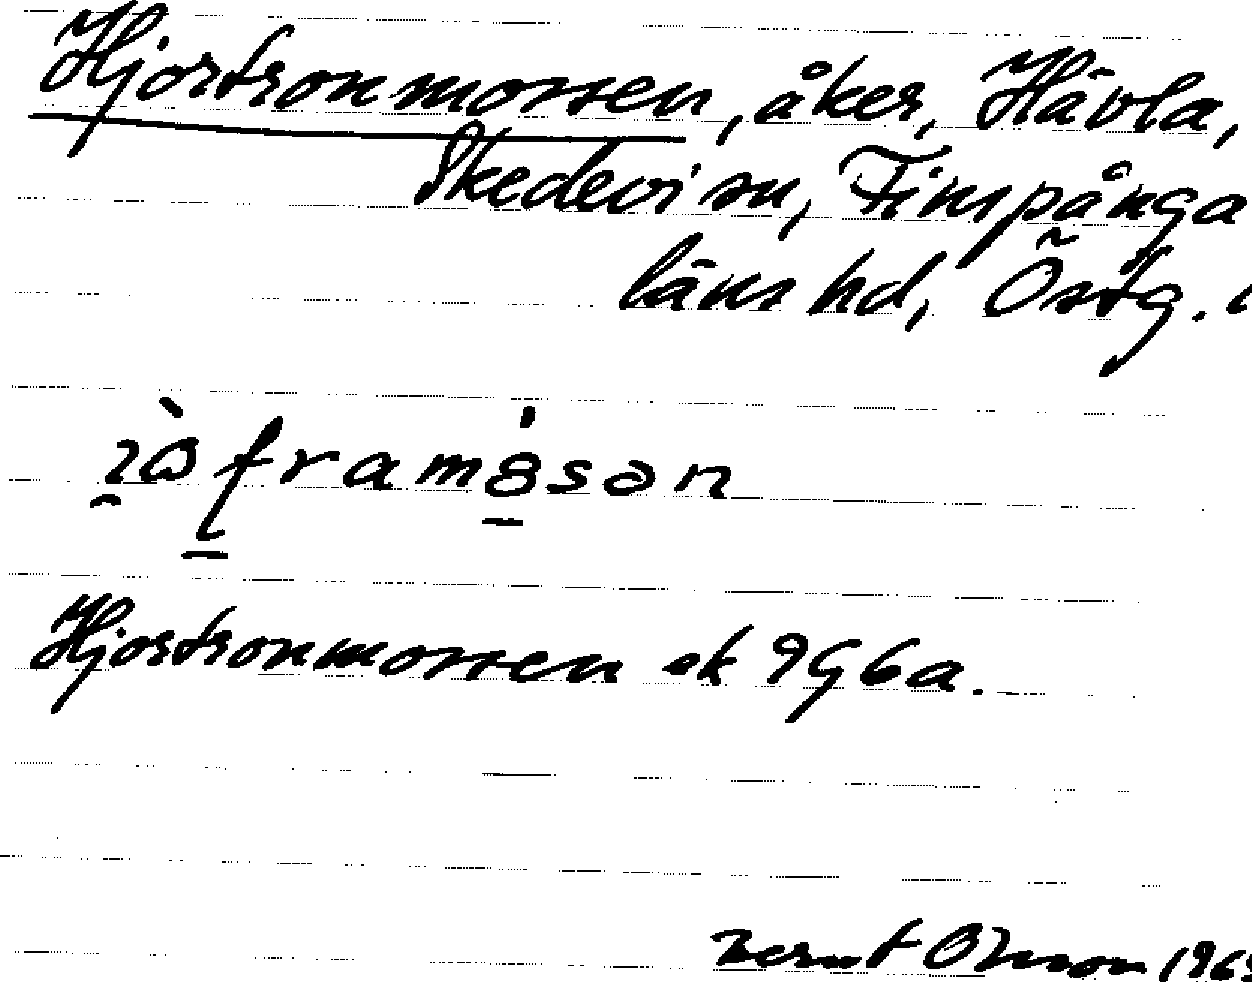 Hjortronmossen, åker, Hävla,
Skedevi sn, Finspånga
läns hd, Östg.
Hjortronmossen ek 9g6a.
Bernt Olsson